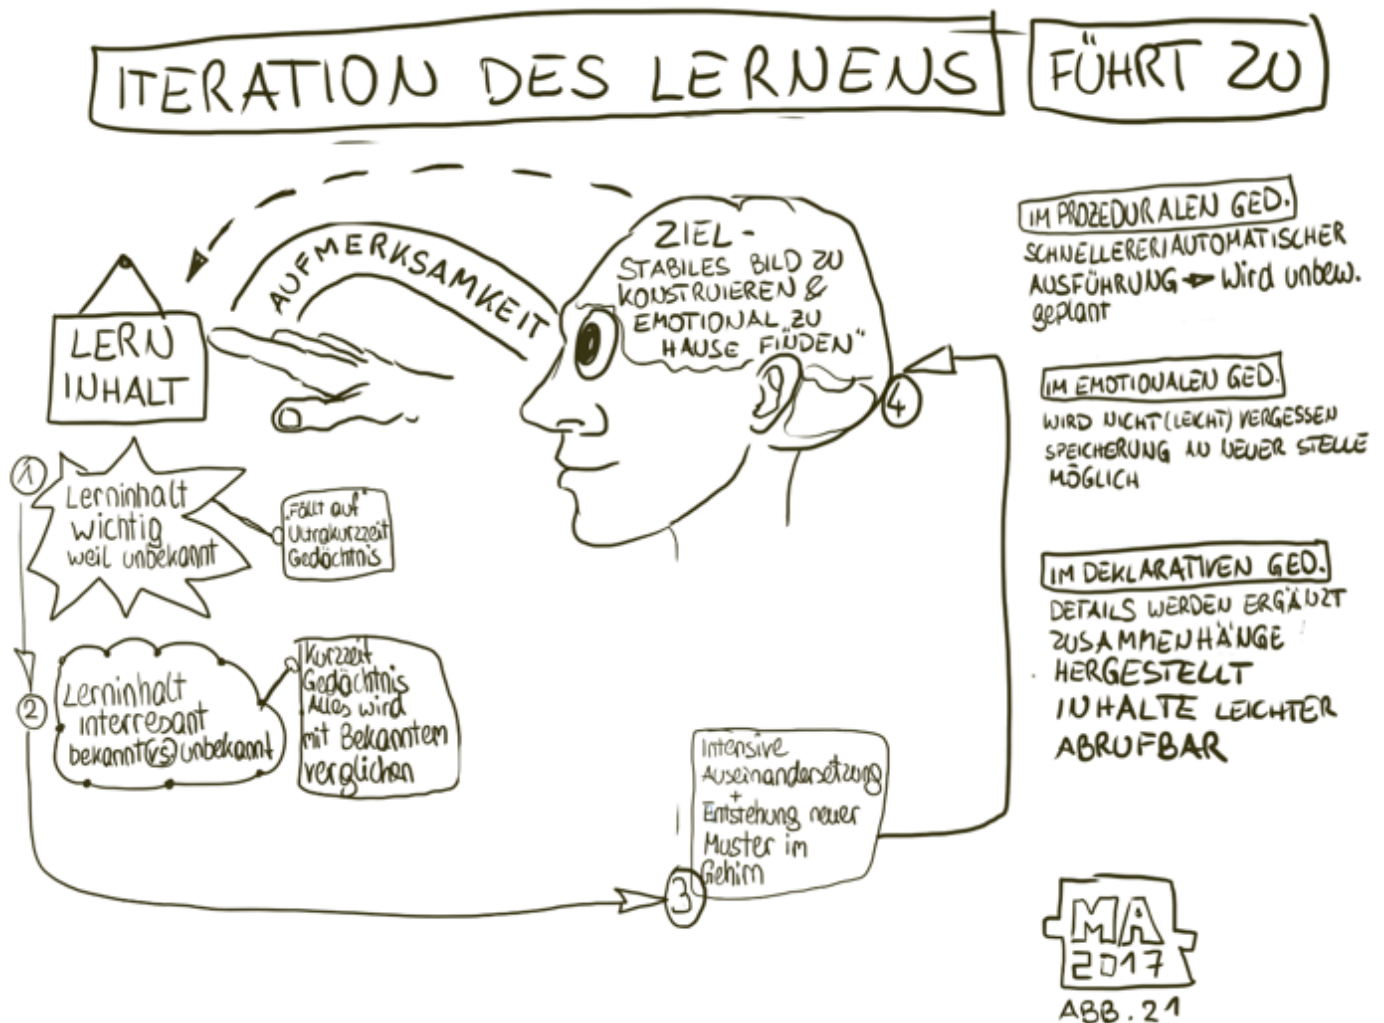 ITERATION DES LERNENS
FÜHRT ZU
AUFMERKSAMKEIT
LERN
INHALT
ZIEL -
STABILES BILD ZU
KONSTRUIEREN &
EMOTIONAL „ZU
HAUSE FINDEN"
1
Lerninhalt
wichtig
weil unbekannt
„Fällt auf"
Ultrakurzzeit
Gedächtnis
2
Lerninhalt
interresant
bekannt vs unbekannt
Kurzzeit
Gedächtnis
Alles wird
mit Bekanntem
verglichen
3
Intensive
Auseinandersetzung
+
Entstehung neuer
Muster im
Gehirn
4
IM PROZEDURALEN GED.
SCHNELLERER/AUTOMATISCHER
AUSFÜHRUNG → Wird unbew.
geplant
IM EMOTIONALEN GED.
WIRD NICHT (LEICHT) VERGESSEN
SPEICHERUNG AN NEUER STELLE
MÖGLICH
IM DEKLARATIVEN GED.
DETAILS WERDEN ERGÄNZT
ZUSAMMENHÄNGE
HERGESTELLT
INHALTE LEICHTER
ABRUFBAR
MA
2017
ABB. 21